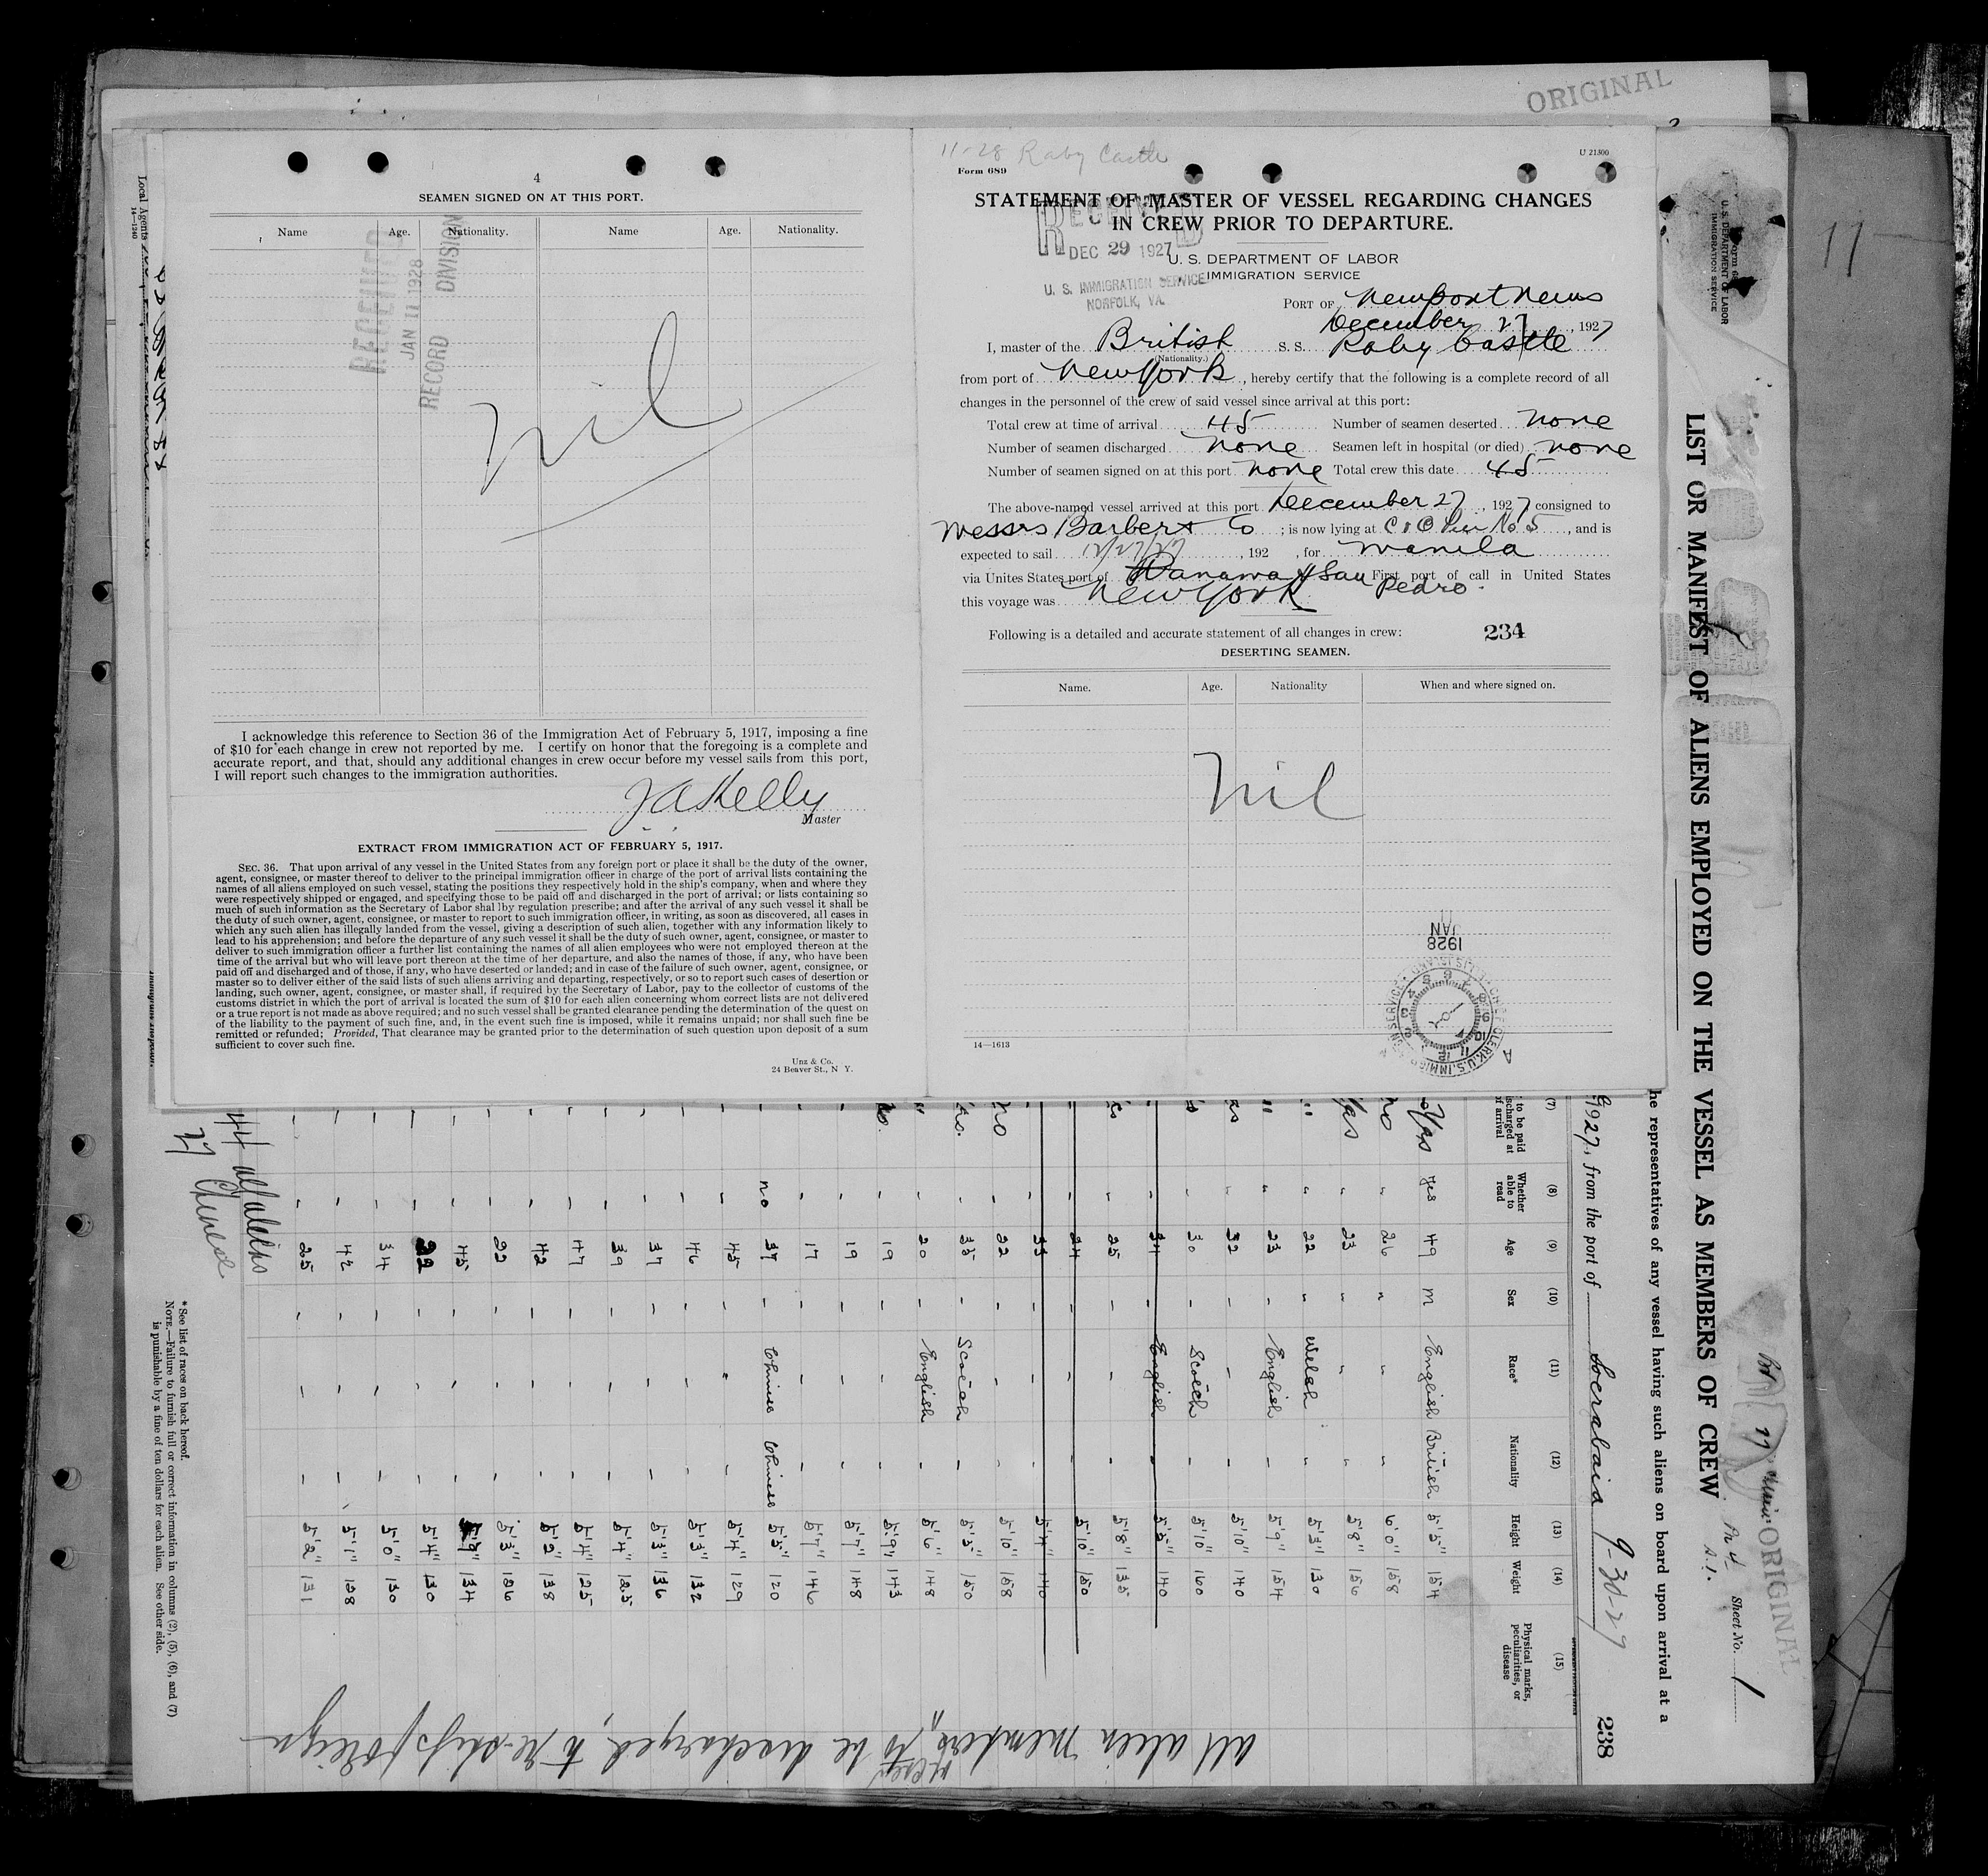 ORIGINAL
4
SEAMEN SIGNED ON AT THIS PORT.
Name Age. Nationality. Name Age. Nationality.
RECEIVED
JAN 11 1928
RECORD DIVISION
nil
I acknowledge this reference to Section 36 of the Immigration Act of February 5, 1917, imposing a fine
of $10 for each change in crew not reported by me. I certify on honor that the foregoing is a complete and
accurate report, and that, should any additional changes in crew occur before my vessel sails from this port,
I will report such changes to the immigration authorities.
J A Kelly
Master
EXTRACT FROM IMMIGRATION ACT OF FEBRUARY 5, 1917.
SEC. 36. That upon arrival of any vessel in the United States from any foreign port or place it shall be the duty of the owner,
agent, consignee, or master thereof to deliver to the principal immigration officer in charge of the port of arrival lists containing the
names of all aliens employed on such vessel, stating the positions they respectively hold in the ship's company, when and where they
were respectively shipped or engaged, and specifying those to be paid off and discharged in the port of arrival; or lists containing so
much of such information as the Secretary of Labor shal lby regulation prescribe; and after the arrival of any such vessel it shall be
the duty of such owner, agent, consignee, or master to report to such immigration officer, in writing, as soon as discovered, all cases in
which any such alien has illegally landed from the vessel, giving a description of such alien, together with any information likely to
lead to his apprehension; and before the departure of any such vessel it shall be the duty of such owner, agent, consignee, or master to
deliver to such immigration officer a further list containing the names of all alien employees who were not employed thereon at the
time of the arrival but who will leave port thereon at the time of her departure, and also the names of those, if any, who have been
paid off and discharged and of those, if any, who have deserted or landed; and in case of the failure of such owner, agent, consignee, or
master so to deliver either of the said lists of such aliens arriving and departing, respectively, or so to report such cases of desertion or
landing, such owner, agent, consignee, or master shall, if required by the Secretary of Labor, pay to the collector of customs of the
customs district in which the port of arrival is located the sum of $10 for each alien concerning whom correct lists are not delivered
or a true report is not made as above required; and no such vessel shall be granted clearance pending the determination of the quest on
of the liability to the payment of such fine, and, in the event such fine is imposed, while it remains unpaid; nor shall such fine be
remitted or refunded; Provided, That clearance may be granted prior to the determination of such question upon deposit of a sum
sufficient to cover such fine.
Unz & Co.
24 Beaver St., N Y.
11-28 Raby Castle
Form 689
U 21300
STATEMENT OF MASTER OF VESSEL REGARDING CHANGES
IN CREW PRIOR TO DEPARTURE.
RECEIVED
DEC 29 1927
U. S. IMMIGRATION SERVICE
NORFOLK, VA.
U. S. DEPARTMENT OF LABOR
IMMIGRATION SERVICE
PORT OF Newport News
December 27, 1927
I, master of the British S. S. Raby Castle
(Nationality.)
from port of New York, hereby certify that the following is a complete record of all
changes in the personnel of the crew of said vessel since arrival at this port:
Total crew at time of arrival 45 Number of seamen deserted none
Number of seamen discharged none Seamen left in hospital (or died) none
Number of seamen signed on at this port none Total crew this date 45
The above-named vessel arrived at this port December 27, 1927 consigned to
Messrs Barber & Co; is now lying at C & O Pier No 5, and is
expected to sail 12/27/27, 192 , for Manila
via Unites States port of Panama & San Pedro First port of call in United States
this voyage was New York
Following is a detailed and accurate statement of all changes in crew: 234
DESERTING SEAMEN.
Name. Age. Nationality When and where signed on.
nil
JAN
1928
14—1613
11
Local Agents
14—1240
U. S. DEPARTMENT OF LABOR
IMMIGRATION SERVICE
ORIGINAL
Sheet No. 1
LIST OR MANIFEST OF ALIENS EMPLOYED ON THE VESSEL AS MEMBERS OF CREW
he representatives of any vessel having such aliens on board upon arrival at a
1927, from the port of Soerabaia 9-30-27
238
(7) (8) (9) (10) (11) (12) (13) (14) (15)
to be paid
scharged at
of arrival
Whether able to read
Age
Sex
Race*
Nationality
Height
Weight
Physical marks, peculiarities, or disease
Yes yes 49 M English British 5'5" 154
no " 26 " " " 6'0" 158
Yes " 23 " " " 5'8" 156
" " 22 " Welsh " 5'3" 130
" " 23 - English - 5'9" 154
32 - - - 5'10" 140
30 - Scotch - 5'10" 160
34 - English - 5'5" 140
25 - - - 5'8" 135
24 - - - 5'10" 150
33 - - - 5'4" 140
no - 22 - - - 5'10" 158
- 33 - Scotch - 5'5" 150
" - 20 - English - 5'6" 148
- 19 - - - 5'9" 143
- 19 - - - 5'7" 148
- 17 - - - 5'7" 146
no 37 - Chinese Chinese 5'5" 120
- 45 - - - 5'4" 129
- 46 - - - 5'3" 132
- 37 - - - 5'3" 136
- 39 - - - 5'4" 125
- 47 - - - 5'4" 125
- 42 - - - 5'2" 138
- 22 - - - 5'3" 126
- 45 - - - 134
- 22 - - - 5'4" 130
- 34 - - - 5'0" 130
- 42 - - - 5'1" 128
- 25 - - - 5'2" 131
44 all aliens
27 Chinese
All alien members of crew to be discharged, to re-ship foreign
* See list of races on back hereof.
NOTE.—Failure to furnish full or correct information in columns (2), (5), (6), and (7)
is punishable by a fine of ten dollars for each alien. See other side.